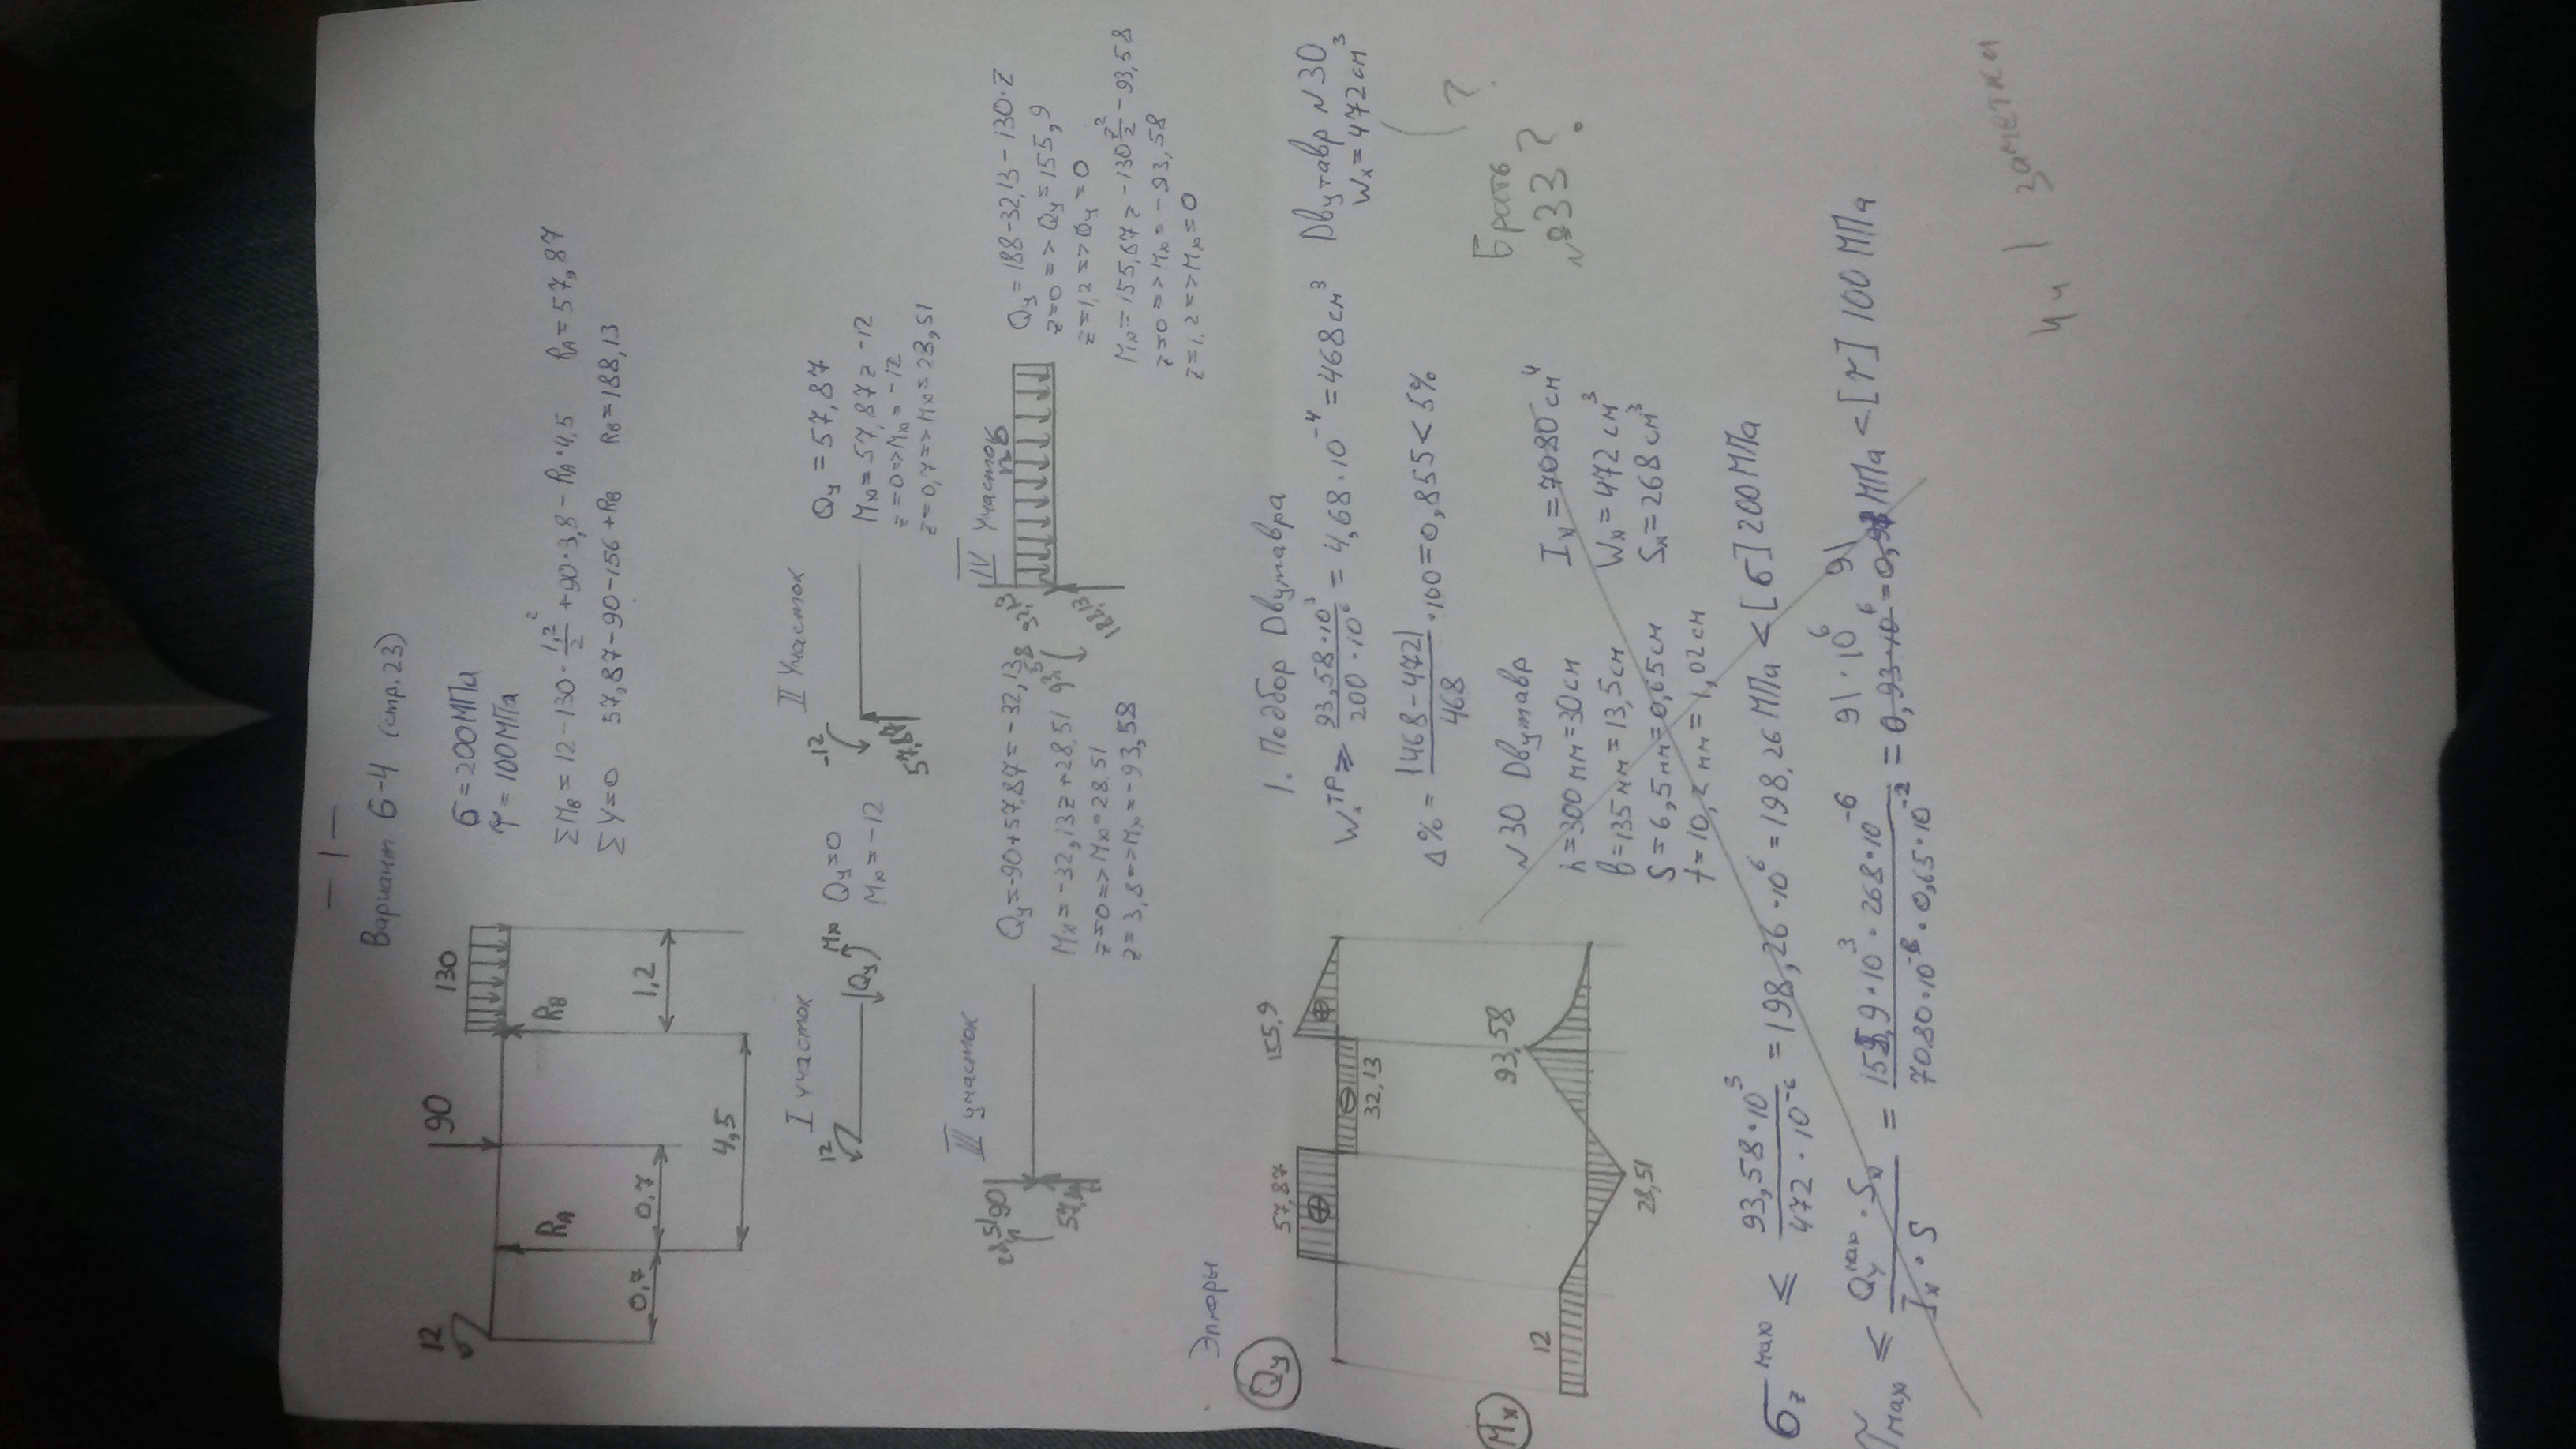 — 1 —
Вариант 6-4 (стр.23)
12
90
130
RA
RB
0,7
0,7
1,2
4,5
σ=200МПа
τ=100МПа
ΣMB=12-130·1,2²/2+90·3,8-RA·4,5 RA=57,87
ΣY=0 57,87-90-156+RB RB=188,13
I участок
12
Mx
Qy
Qy=0
Mx=-12
II Участок
-12
57,87
Qy=57,87
Mx=57,87z-12
z=0=>Mx=-12
z=0,7=>Mx=28,51
III участок
28,51
90
57,87
Qy=-90+57,87=-32,13
Mx=-32,13z+28,51
z=0=>Mx=28,51
z=3,8=>Mx=-93,58
IV Участок
32,13
93,58
188,13
Qy=188-32,13-130·z
z=0=>Qy=155,9
z=1,2=>Qy=0
Mx=155,87z-130z²/2-93,58
z=0=>Mx=-93,58
z=1,2=>Mx=0
Эпюры
Qy
57,87
155,9
32,13
Mx
12
93,58
28,51
1. Подбор Двутавра
Wx ТР ⩾ 93,58·10³/200·10⁶=4,68·10⁻⁴=468см³ Двутавр N30
Wx=472см³
Δ%=|468-472|/468·100=0,855<5%
?
Брать
№33?
N30 Двутавр
h=300мм=30см
b=135мм=13,5см
S=6,5мм=0,65см
t=10,2мм=1,02см
Ix=7080см⁴
Wx=472см³
Sx=268см³
σz max ⩽ 93,58·10³/472·10⁻⁶=198,26·10⁶=198,26МПа<[σ]200МПа
91·10⁶ 91
τmax ⩽ Qy max·Sx/Ix·S=155,9·10³·268·10⁻⁶/7080·10⁻⁸·0,65·10⁻²=0,93·10⁶=0,93МПа<[τ]100МПа
44 | заметки